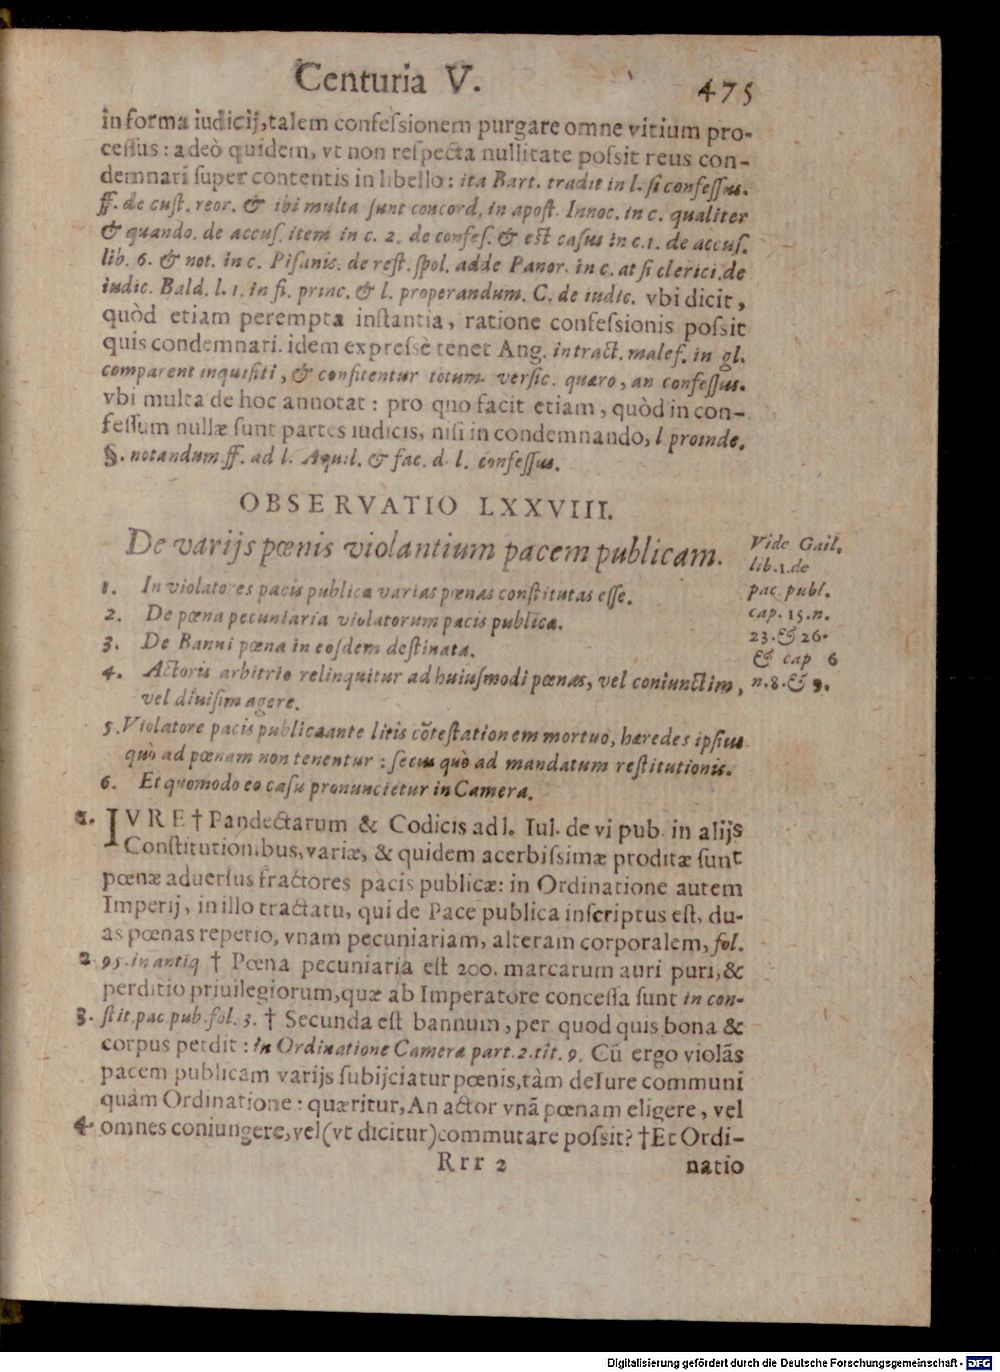 Centuria V. 475
in forma iudicij, talem confessionem purgare omne vitium pro-
cessus: adeò quidem, vt non respecta nullitate possit reus con-
demnari super contentis in libello: ita Bart. tradit in l. si confessus.
ff. de cust. reor. & ibi multa sunt concord, in apost. Innoc. in c. qualiter
& quando. de accus. item in c. 2. de confes. & est casus in c. 1. de accus.
lib. 6. & not. in c. Pisanis. de rest. spol. adde Panor. in c. at si clerici. de
iudic. Bald. l. 1. in fi. princ. & l. properandum. C. de iudic. vbi dicit,
quòd etiam perempta instantia, ratione confessionis possit
quis condemnari. idem expressè tenet Ang. in tract. malef. in gl.
comparent inquisiti, & confitentur totum. versic. quæro, an confessus.
vbi multa de hoc annotat: pro quo facit etiam, quòd in con-
fessum nullæ sunt partes iudicis, nisi in condemnando, l proinde.
§. notandum ff. ad l. Aquil. & fac. d. l. confessus.
OBSERVATIO LXXVIII.
De varijs pœnis violantium pacem publicam.
Vide Gail.
lib. 1. de
pac. publ.
cap. 15. n.
23. & 26.
& cap 6
n. 8. & 9.
1. In violatores pacis publicæ varias pœnas constitutas esse.
2. De pœna pecuniaria violatorum pacis publicæ.
3. De Banni pœna in eosdem destinata.
4. Actoris arbitrio relinquitur ad huiusmodi pœnas, vel coniunctim,
vel diuisim agere.
5. Violatore pacis publicæ ante litis cõtestationem mortuo, hæredes ipsius
quò ad pœnam non tenentur: secus quò ad mandatum restitutionis.
6. Et quomodo eo casu pronuncietur in Camera.
1. IVRE † Pandectarum & Codicis ad l. Iul. de vi pub. in alijs
Constitutionibus, variæ, & quidem acerbissimæ proditæ sunt
pœnæ aduersus fractores pacis publicæ: in Ordinatione autem
Imperij, in illo tractatu, qui de Pace publica inscriptus est, du-
as pœnas reperio, vnam pecuniariam, alteram corporalem, fol.
2. 95. in antiq † Pœna pecuniaria est 200. marcarum auri puri, &
perditio priuilegiorum, quæ ab Imperatore concessa sunt in con-
3. stit. pac pub. fol. 3. † Secunda est bannum, per quod quis bona &
corpus perdit: in Ordinatione Cameræ part. 2. tit. 9. Cũ ergo violãs
pacem publicam varijs subijciatur pœnis, tàm de Iure communi
quàm Ordinatione: quæritur, An actor vnã pœnam eligere, vel
4. omnes coniungere, vel (vt dicitur) commutare possit? † Et Ordi-
Rrr 2 natio
Digitalisierung gefördert durch die Deutsche Forschungsgemeinschaft - DFG